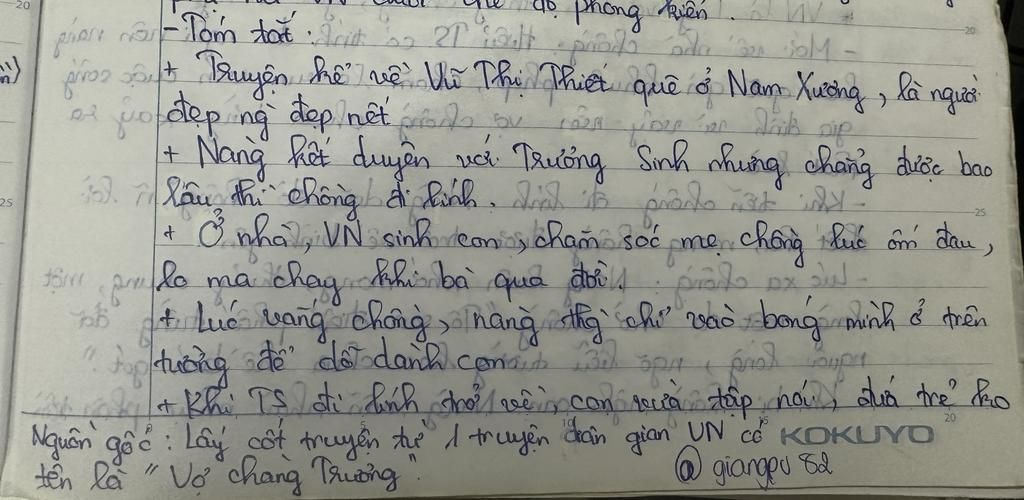 phong kiến.
- Tóm tắt:
+ Truyện kể về Vũ Thị Thiết quê ở Nam Xương, là người
đẹp ng đẹp nết
+ Nàng kết duyên với Trương Sinh nhưng chẳng được bao
lâu thì chồng đi lính.
+ Ở nhà, VN sinh con, chăm sóc mẹ chồng lúc ốm đau,
lo ma chay khi bà qua đời.
+ Lúc vắng chồng, nàng thg chỉ vào bóng mình ở trên
tường để dỗ dành con
+ Khi TS đi lính trở về, con vừa tập nói, đứa trẻ ko
Nguồn gốc: Lấy cốt truyện từ 1 truyện dân gian VN có
tên là "Vợ chàng Trương".
KOKUYO
@giangpu 82
20
25
20
25
20